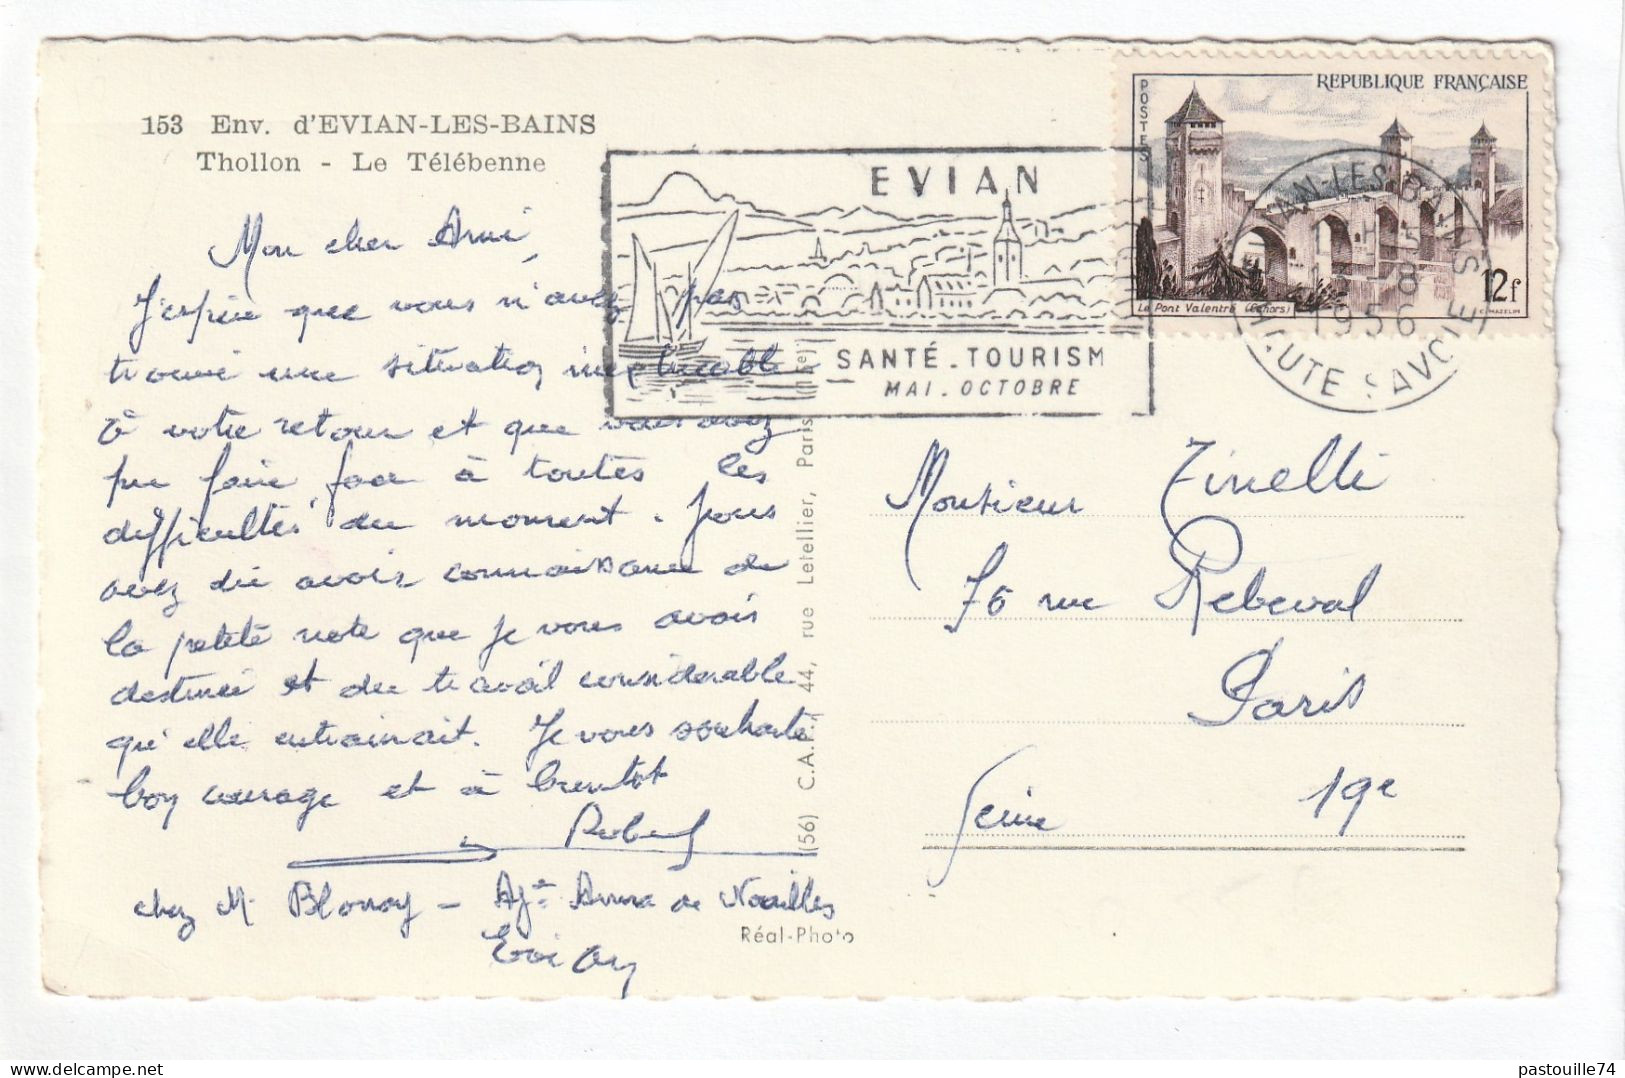 153 Env. d'EVIAN-LES-BAINS
Thollon - Le Télébenne
Mon cher Ami,
J'espère que vous n'avez pas
trouvé une situation inexplicable
à votre retour et que vous avez
pu faire face à toutes les
difficultés du moment. Vous
avez dû avoir connaissance de
la petite note que je vous avais
destinée et du travail considerable
qu'elle entrainait. Je vous souhaite
bon courage et à bientot
Robert
chez M. Blonay - Anna de Noailles
Evian
Réal-Photo
(56) C.A.P., 44, rue Letellier, Paris (15e)
EVIAN
SANTÉ - TOURISM
MAI . OCTOBRE
POSTES
REPUBLIQUE FRANÇAISE
Le Pont Valentré (Cahors)
12f
C. MAZELIN
EVIAN-LES-BAINS
8
1956
HAUTE SAVOIE
Monsieur Tinelli
76 rue Rebeval
Paris
19e
Seine
pastouille74